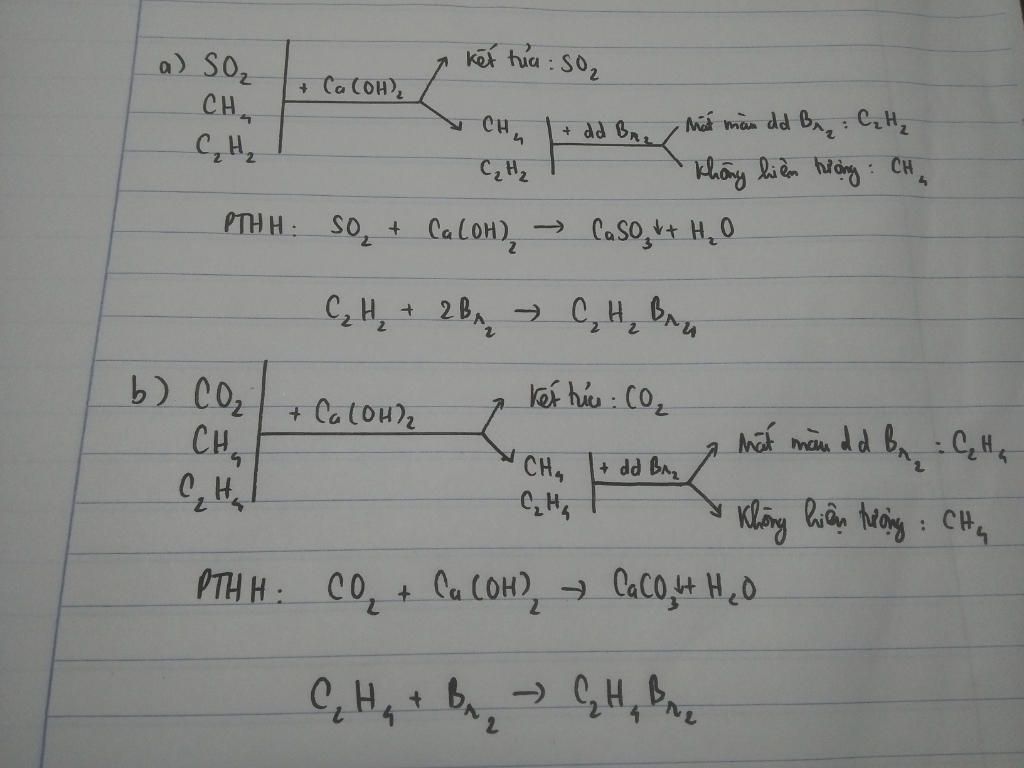 a) SO2 + Ca(OH)2 Kết tủa : SO2
CH4
C2H2
CH4 + dd Br2 Mất màu dd Br2 : C2H2
C2H2 Không hiện tượng : CH4
PTHH: SO2 + Ca(OH)2 → CaSO3↓ + H2O
C2H2 + 2Br2 → C2H2Br4
b) CO2 + Ca(OH)2 Kết tủa : CO2
CH4
C2H4
CH4 + dd Br2 Mất màu dd Br2 : C2H4
C2H4 Không hiện tượng : CH4
PTHH: CO2 + Ca(OH)2 → CaCO3↓ + H2O
C2H4 + Br2 → C2H4Br2